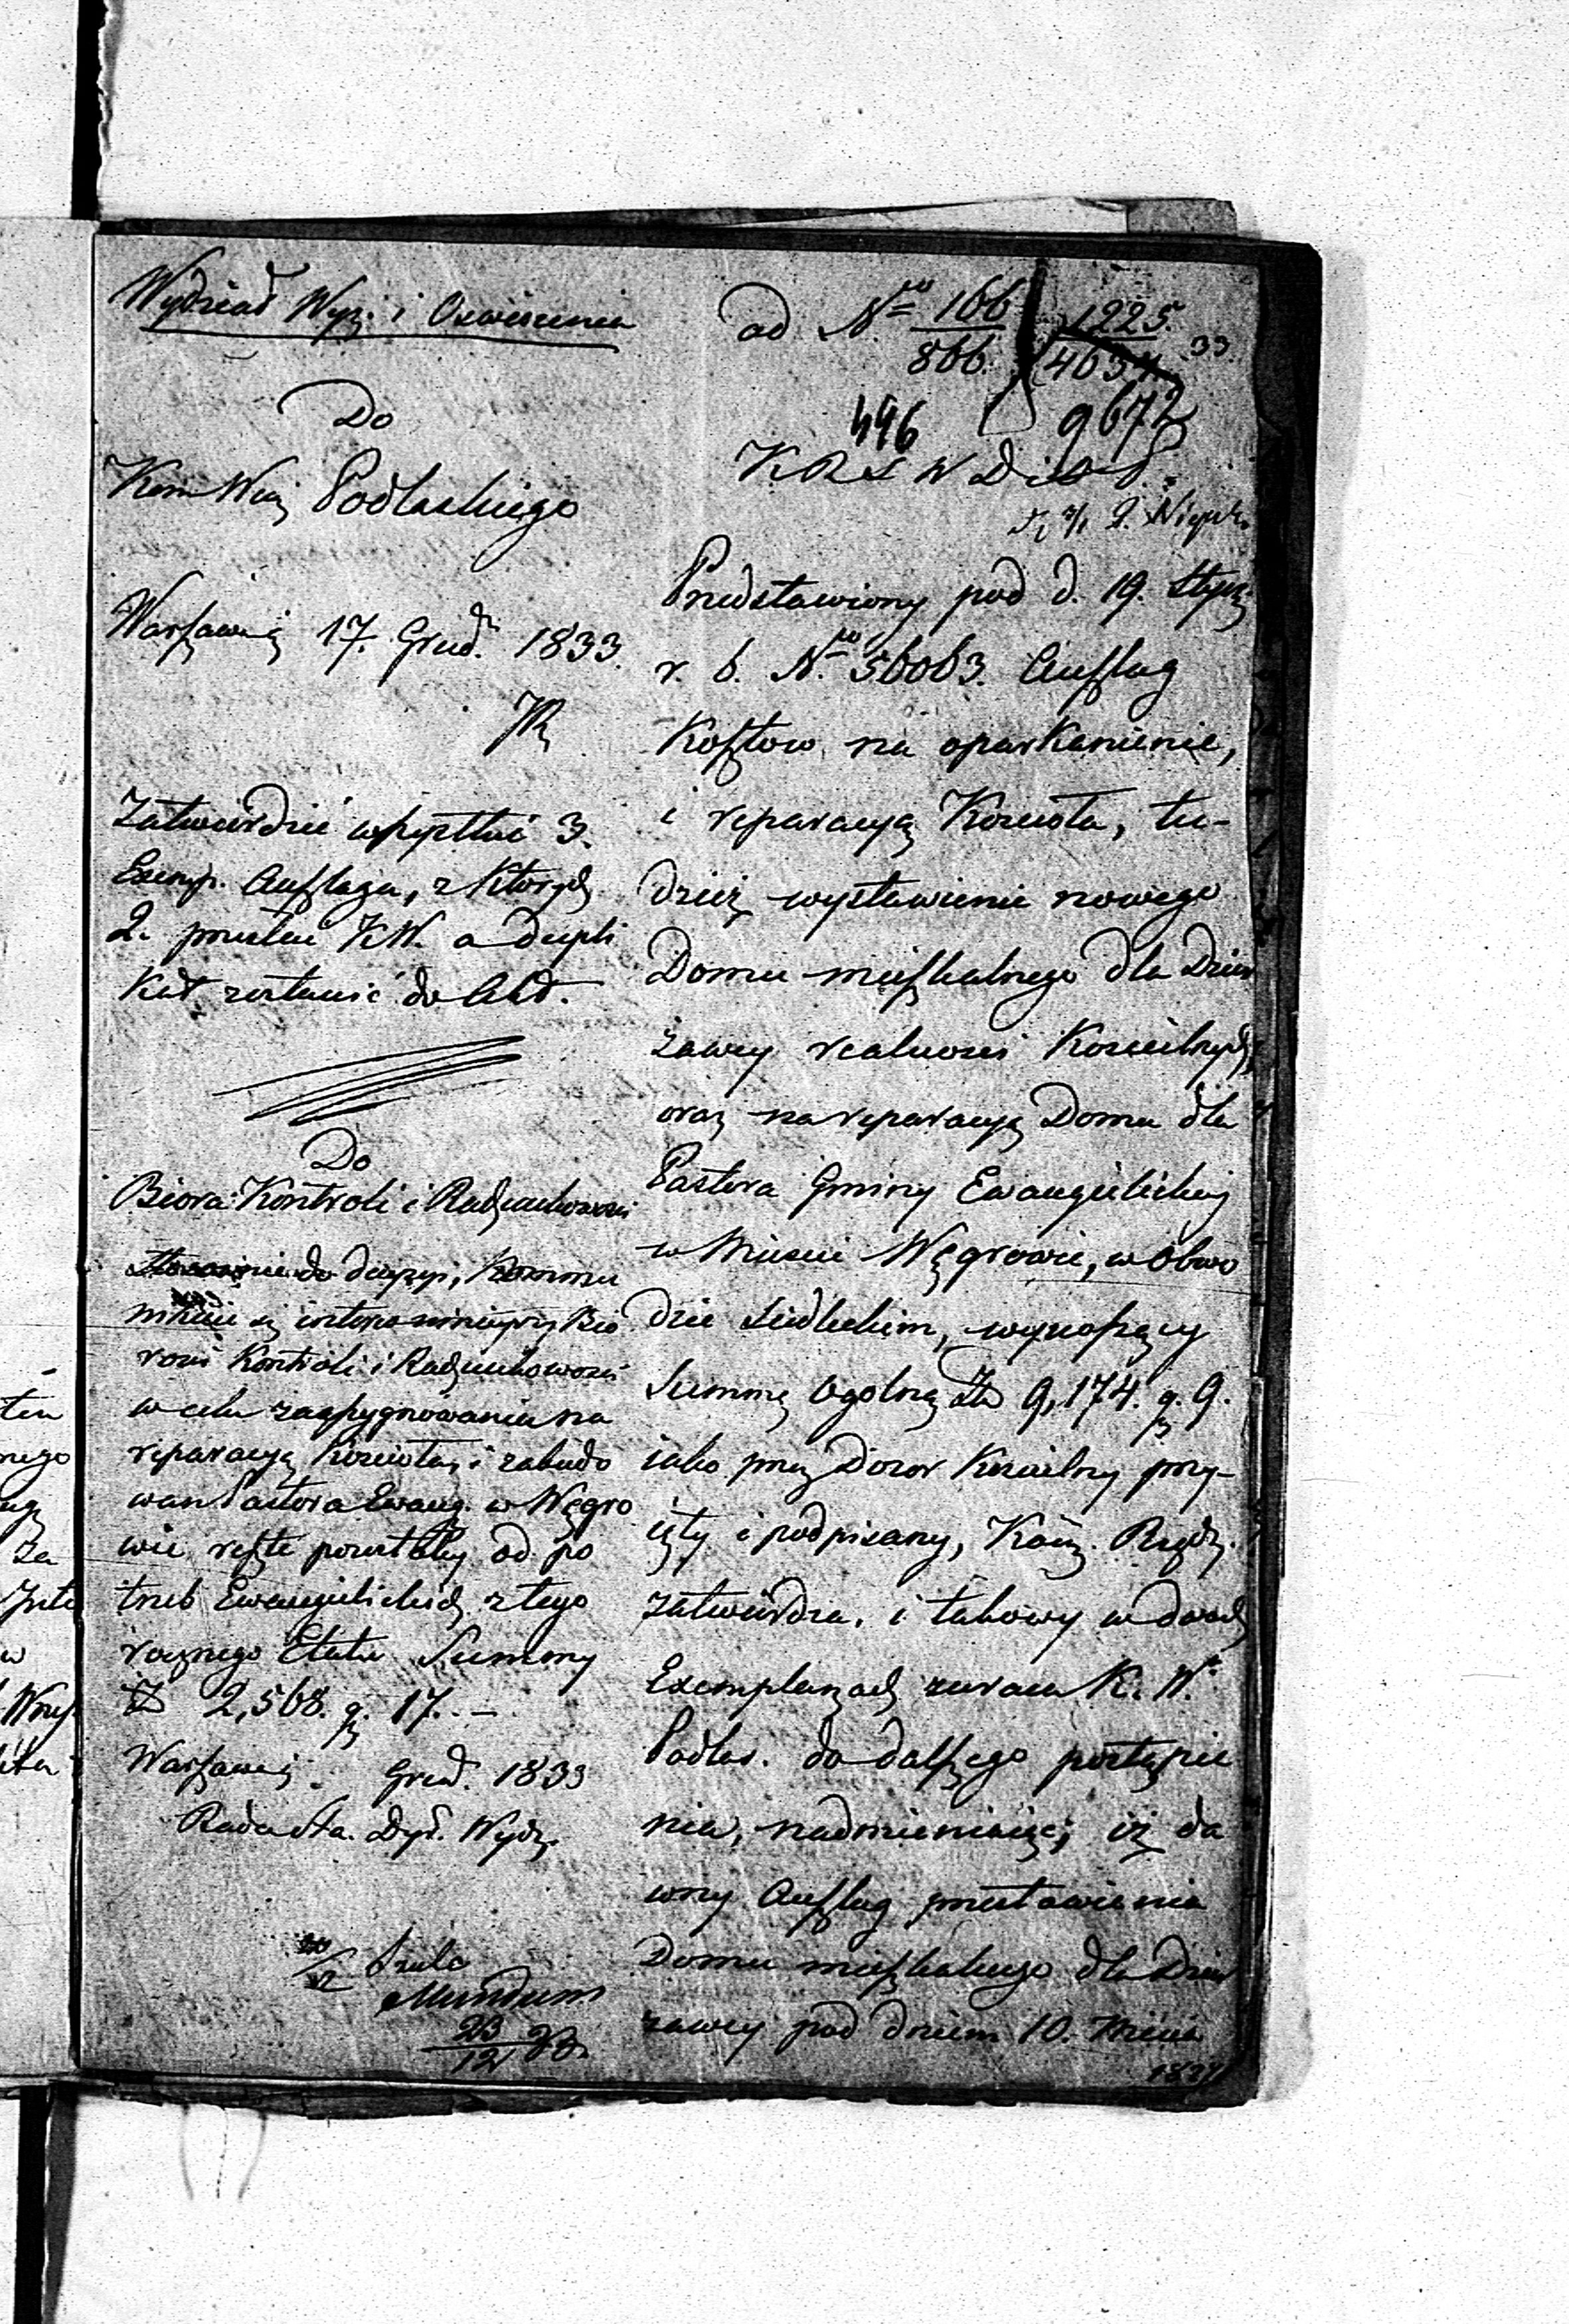 Wydział Wyz. i Oświecenia
Do
Kom Woj Podlaskiego
Warszawie 17. Grud. 1833.
Zatwierdzić wszystkie 3.
Exemp. Anszlagu, z których
2. przesłać KW. a dupli
kat zostawić do Akt.
Do
Biora Kontroli i Rachunkowości
do decyzyi, Kommu
nikuie się Bió
rowi Kontroli i Rachunkowości
w celu zaassygnowania na
reparacyą Kościoła, i zabudo
wań Pastora Ewang. w Węgro
wie, reszte pozostałey od po
trzeb Ewangielickich z tego
rocznego Etatu Summy
Zł 2,568. g. 17. –
Warszawie Grud. 1833
Radca Sta. Dyr. Wydz.
Mundum
23/12 33.
ad Nro 166/866. 1225./4634 33
496 9672
K R S W D i O P.
Przedstawiony pod d. 19. Stycz.
r. b. Nro 56063. Anszlag
Kosztów na oparkanienie,
i reparacyą Kościoła, tu-
dzież wystawienie nowego
Domu mieszkalnego dla Dzier
żawcy realności Kościelnych,
oraz na reparacyą Domu dla
Pastora Gminy Ewangielickiey
w Mieście Węgrowie, w Obwo
dzie Siedleckim, wynoszący
Summę Ogólną Zł 9,174. g. 9.
iako przez Dozór Kościelny przy-
ięty i podpisany, Kom. Rządz.
zatwierdza, i takowy w dwóch
Exemplarzach zwraca K. W.
Podlas. do dalszego postąpie
nia, nadmieniaiąc; iż da
wny Anszlag przestawienia
Domu mieszkalnego dla Dzier
żawcy pod dniem 10.